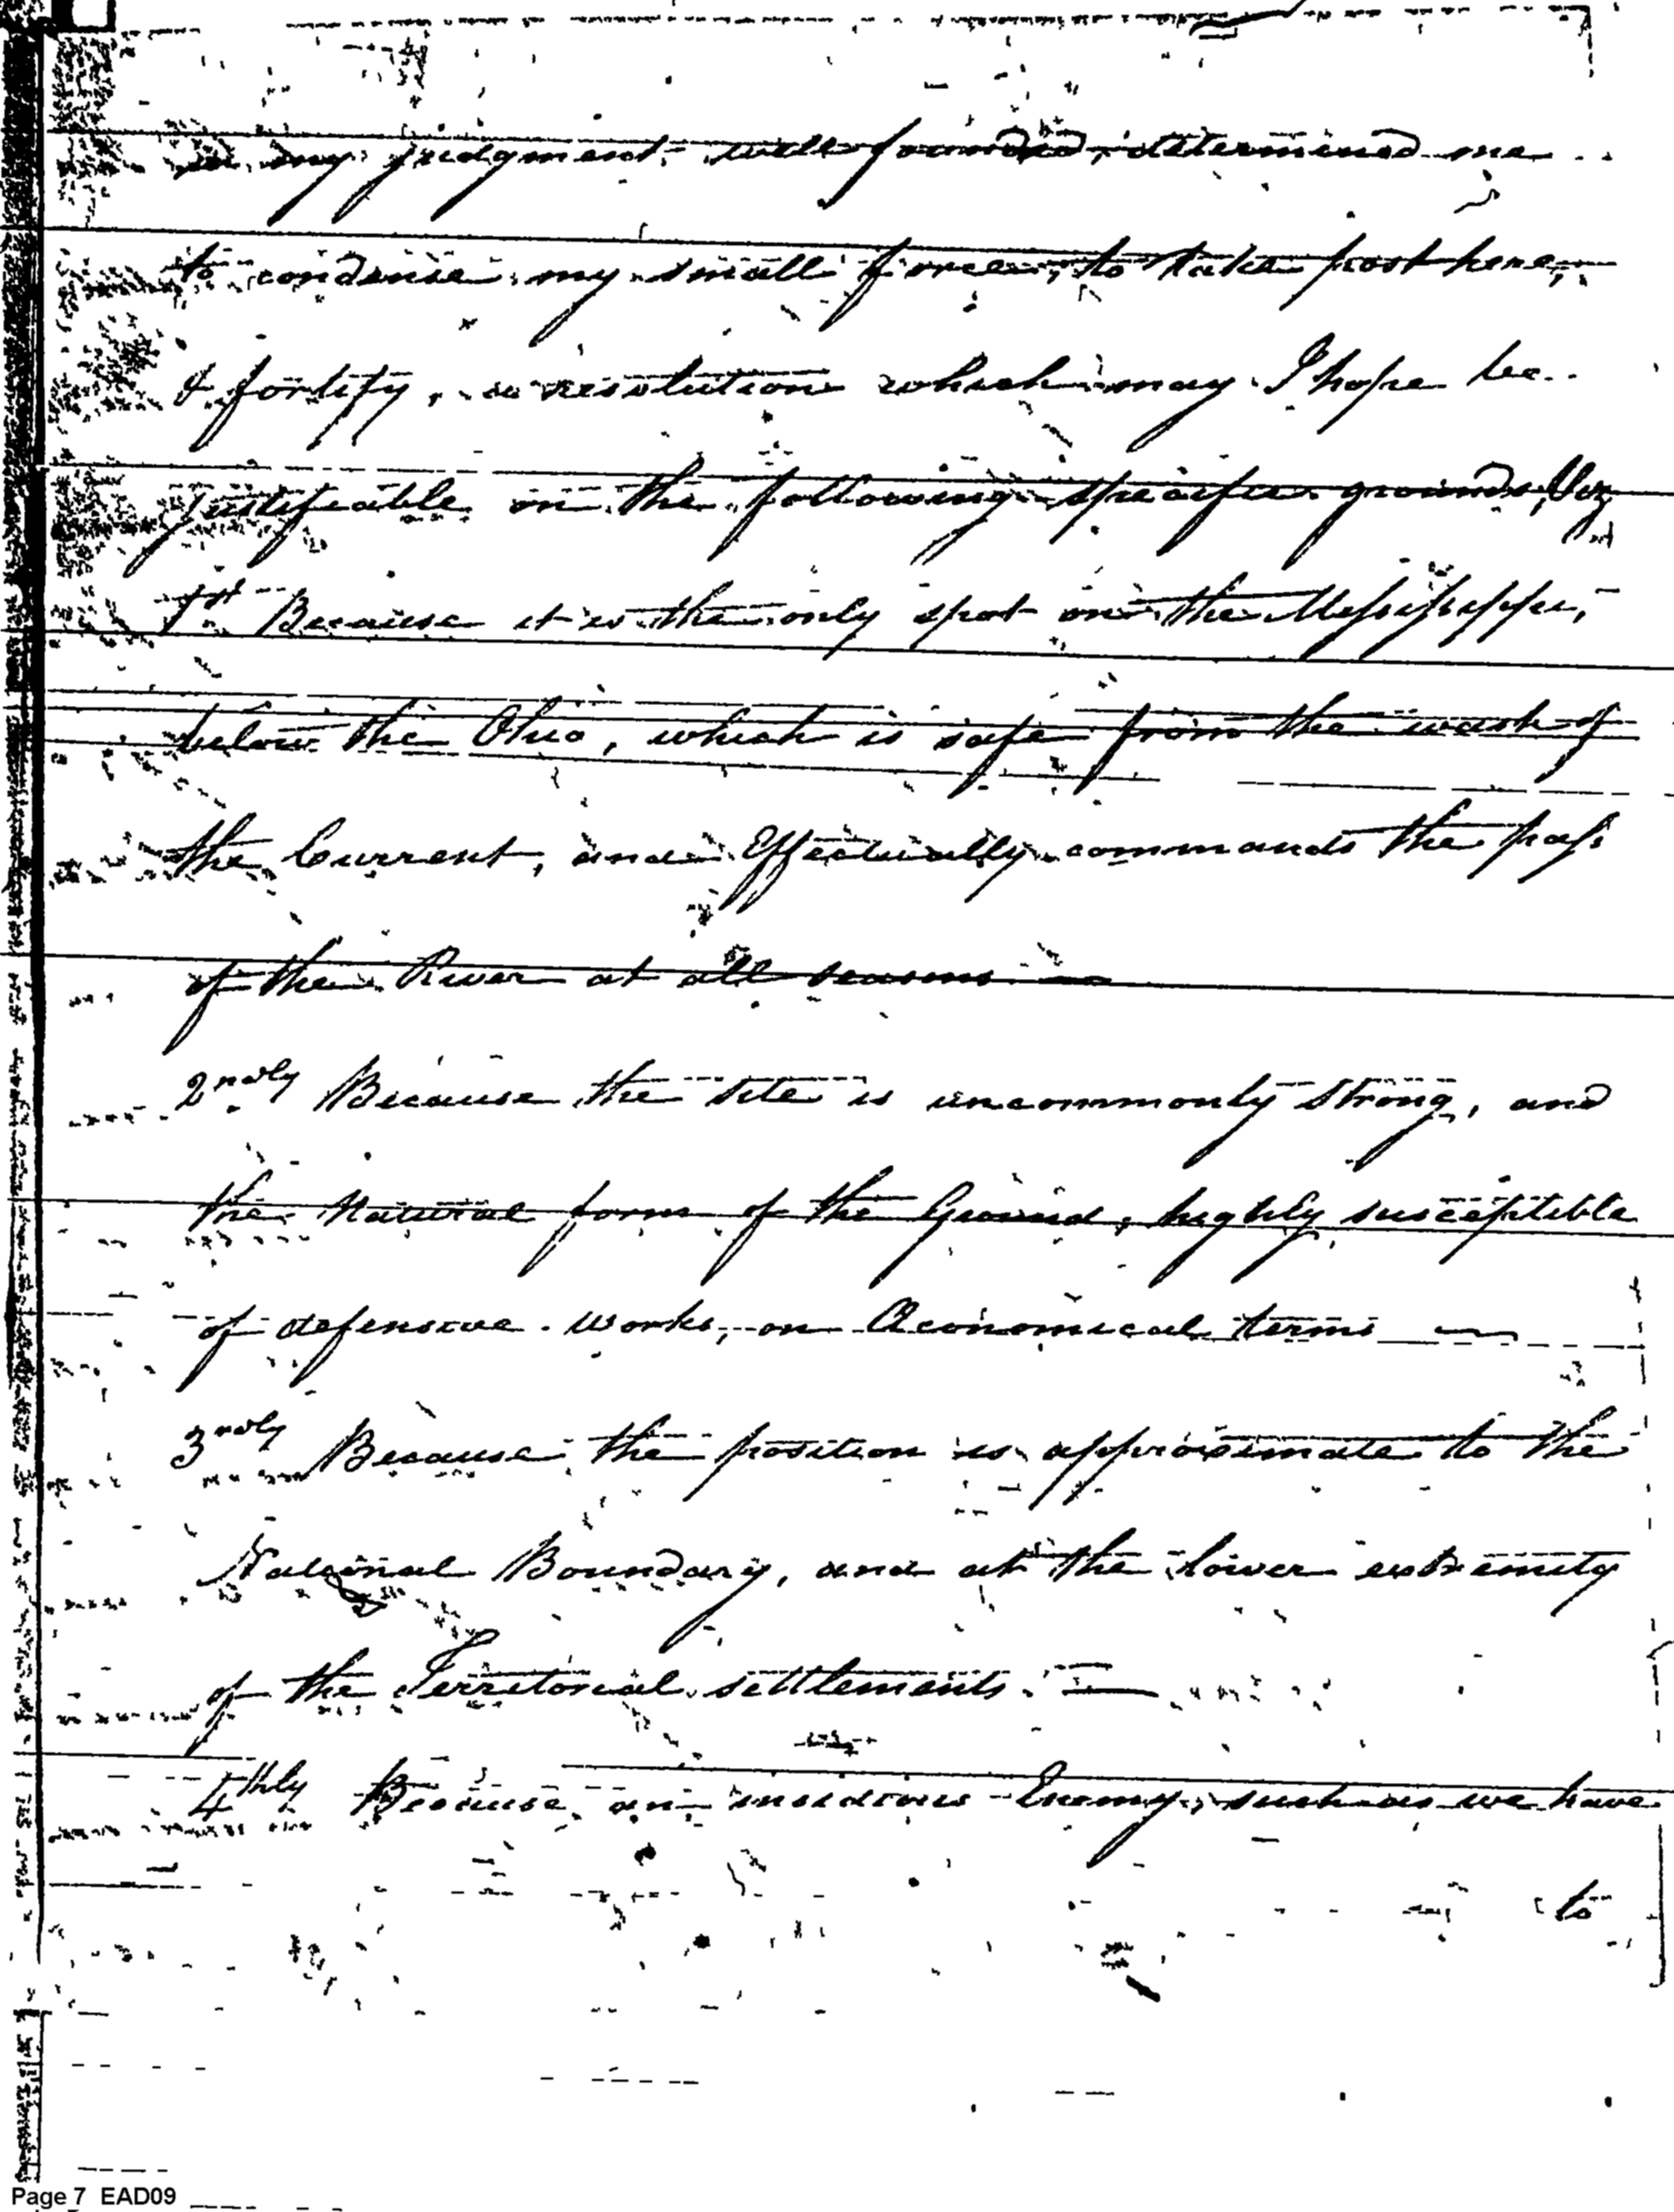 in my judgment, well founded, determined me
to condense my small force, to take post here,
& fortify, a resolution which may I hope be
justifiable on the following specific grounds, Viz
1st Because it is the only spot on the Messissippi,
below the Ohio, which is safe from the wash of
the Current, and Effectually commands the pass
of the River at all seasons —
2ndly Because the site is uncommonly strong, and
the Natural form of the Ground, highly susceptible
of defensive works, on Œconomical terms —
3rdly Because the position is approximate to the
National Boundary, and at the lower extremity
of the Territorial settlements. —
4thly Because an insidious Enemy, such as we have
to
Page 7 EAD09